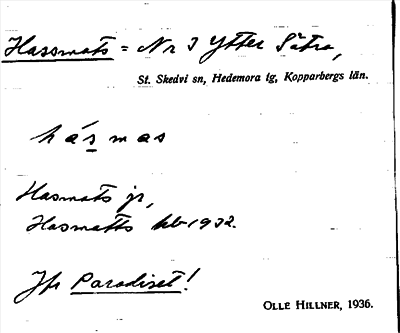 Hassmats = Nr 3 Ytter Sätra,
St. Skedvi sn, Hedemora tg, Kopparbergs län.
hásmas
Hasmats jr,
Hasmatts hb 1932.
Jfr Paradiset!
OLLE HILLNER, 1936.